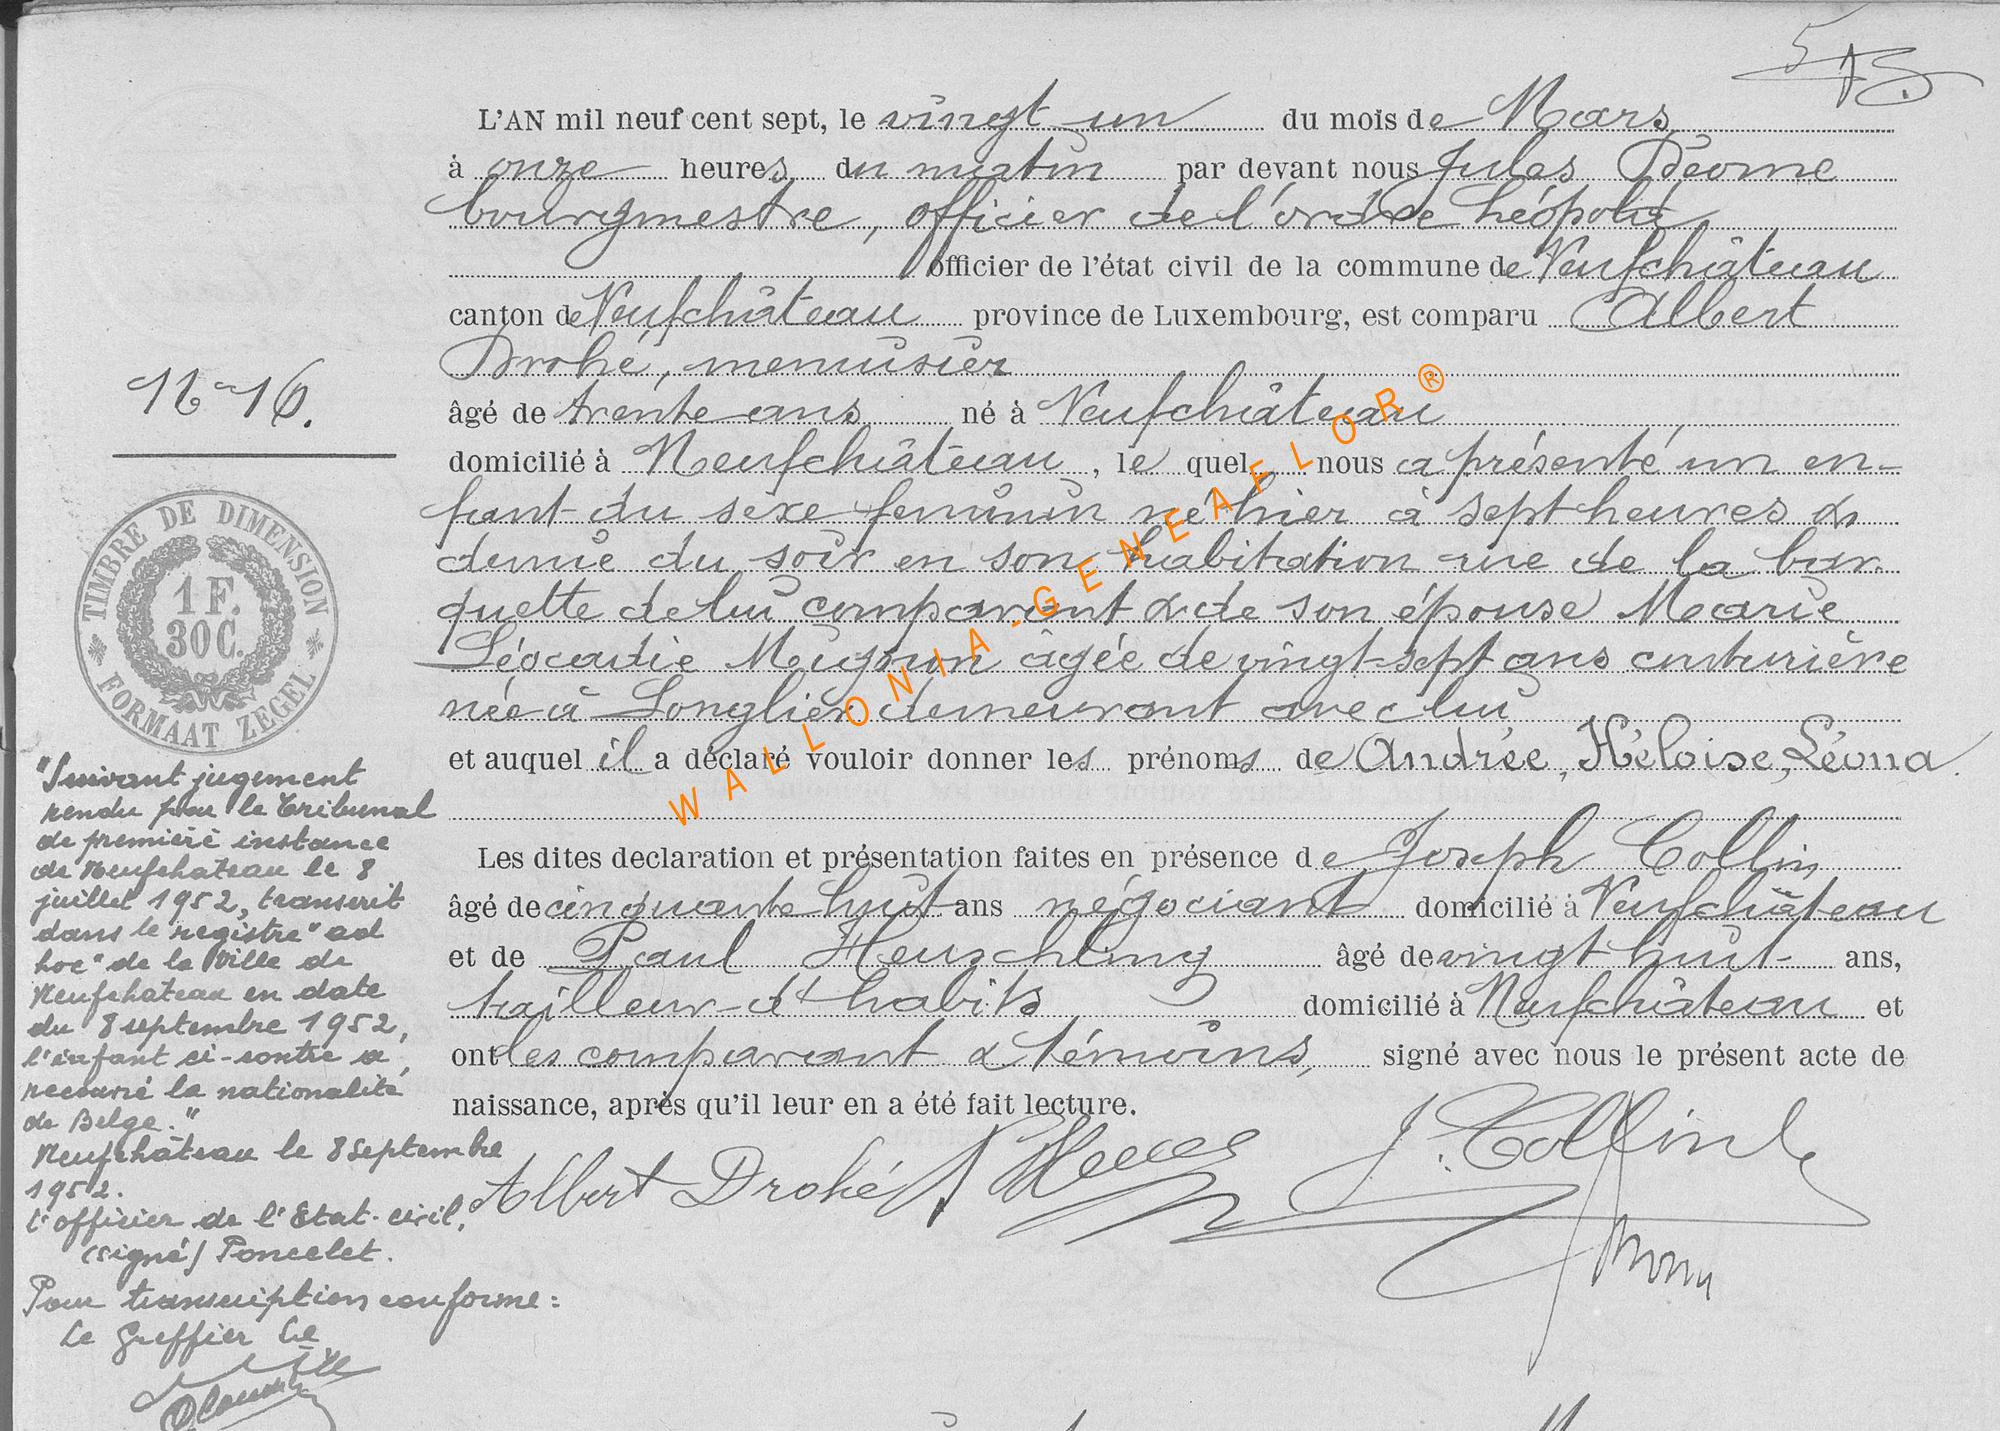 L'AN mil neuf cent sept, le vingt un du mois de Mars
à onze heures du matin par devant nous Jules
bourgmestre, officier de l'ordre Léopold
officier de l'état civil de la commune de Neufchâteau
canton de Neufchâteau province de Luxembourg, est comparu Albert
Drohé, menuisier
âgé de trente ans né à Neufchâteau
domicilié à Neufchâteau, le quel nous a présenté un en-
fant du sexe feminin né hier à sept heures &
demie du soir en son habitation rue de la bar
quette de lui comparant & de son épouse Marie
Léocadie âgée de vingt-sept ans couturière
née à Longlier demeurant avec lui
et auquel il a déclaré vouloir donner les prénoms de Andrée, Héloise, Léona.
Les dites declaration et présentation faites en présence de Joseph Collin
âgé de cinquante huit ans négociant domicilié à Neufchâteau
et de Paul Heuschling âgé de vingt huit ans,
tailleur d'habits domicilié à Neufchâteau et
ont les comparant & témoins, signé avec nous le présent acte de
naissance, après qu'il leur en a été fait lecture.
Albert Drohé J. Collin
N° 16.
TIMBRE DE DIMENSION
1 F.
30 C.
FORMAAT ZEGEL
"Suivant jugement
rendu par le Tribunal
de première instance
de Neufchateau le 8
juillet 1952, transcrit
dans le registre "ad
hoc" de la Ville de
Neufchateau en date
du 8 septembre 1952,
l'enfant ci-contre a
recouvré la nationalité
de Belge."
Neufchâteau le 8 septembre
1952.
l'officier de l'Etat-civil,
(signé) Poncelet.
Pour transcription conforme:
Le Greffier
WALLONIA-GENEAFLOR®